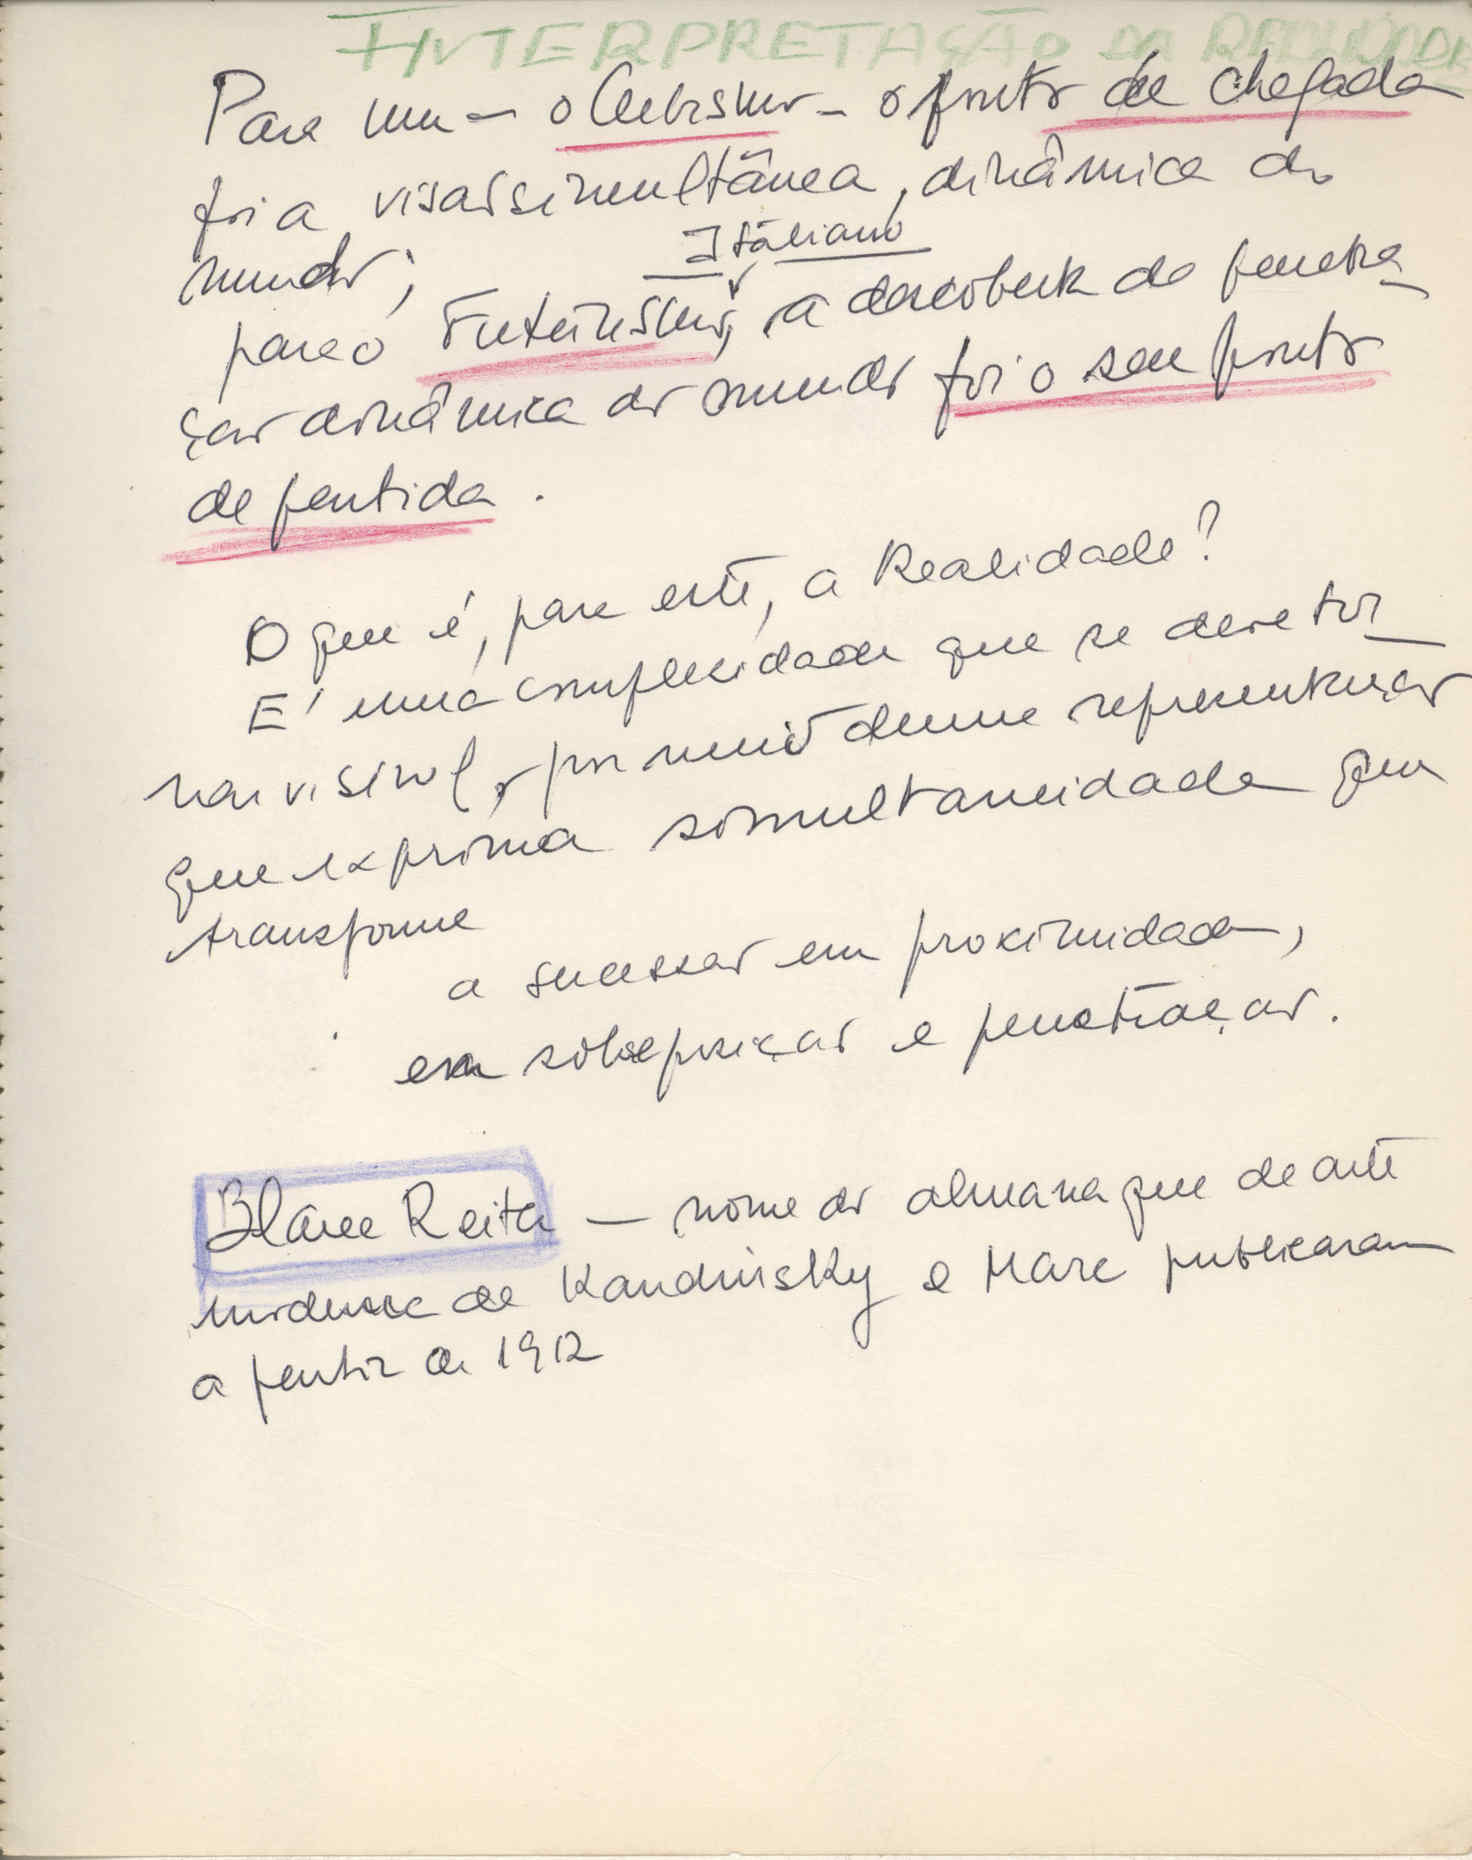 INTERPRETAÇÃO DA REALIDADE
Para um – o Cubismo – o ponto de chegada
foi a visão simultânea, dinâmica do
mundo;
Italiano
para o Futurismo, a descoberta da penetra_
ção dinâmica do mundo foi o seu ponto
de partida.
O que é, para este, a Realidade?
E' uma complexidade que se deve tor_
nar visível, por meio de uma representação
que exprima simultaneidade que
transforme
a sucessão em proximidade,
em sobreposição e penetração.
Blaue Reiter – nome do almanaque de arte
moderna que Kandinsky e Marc publicaram
a partir de 1912